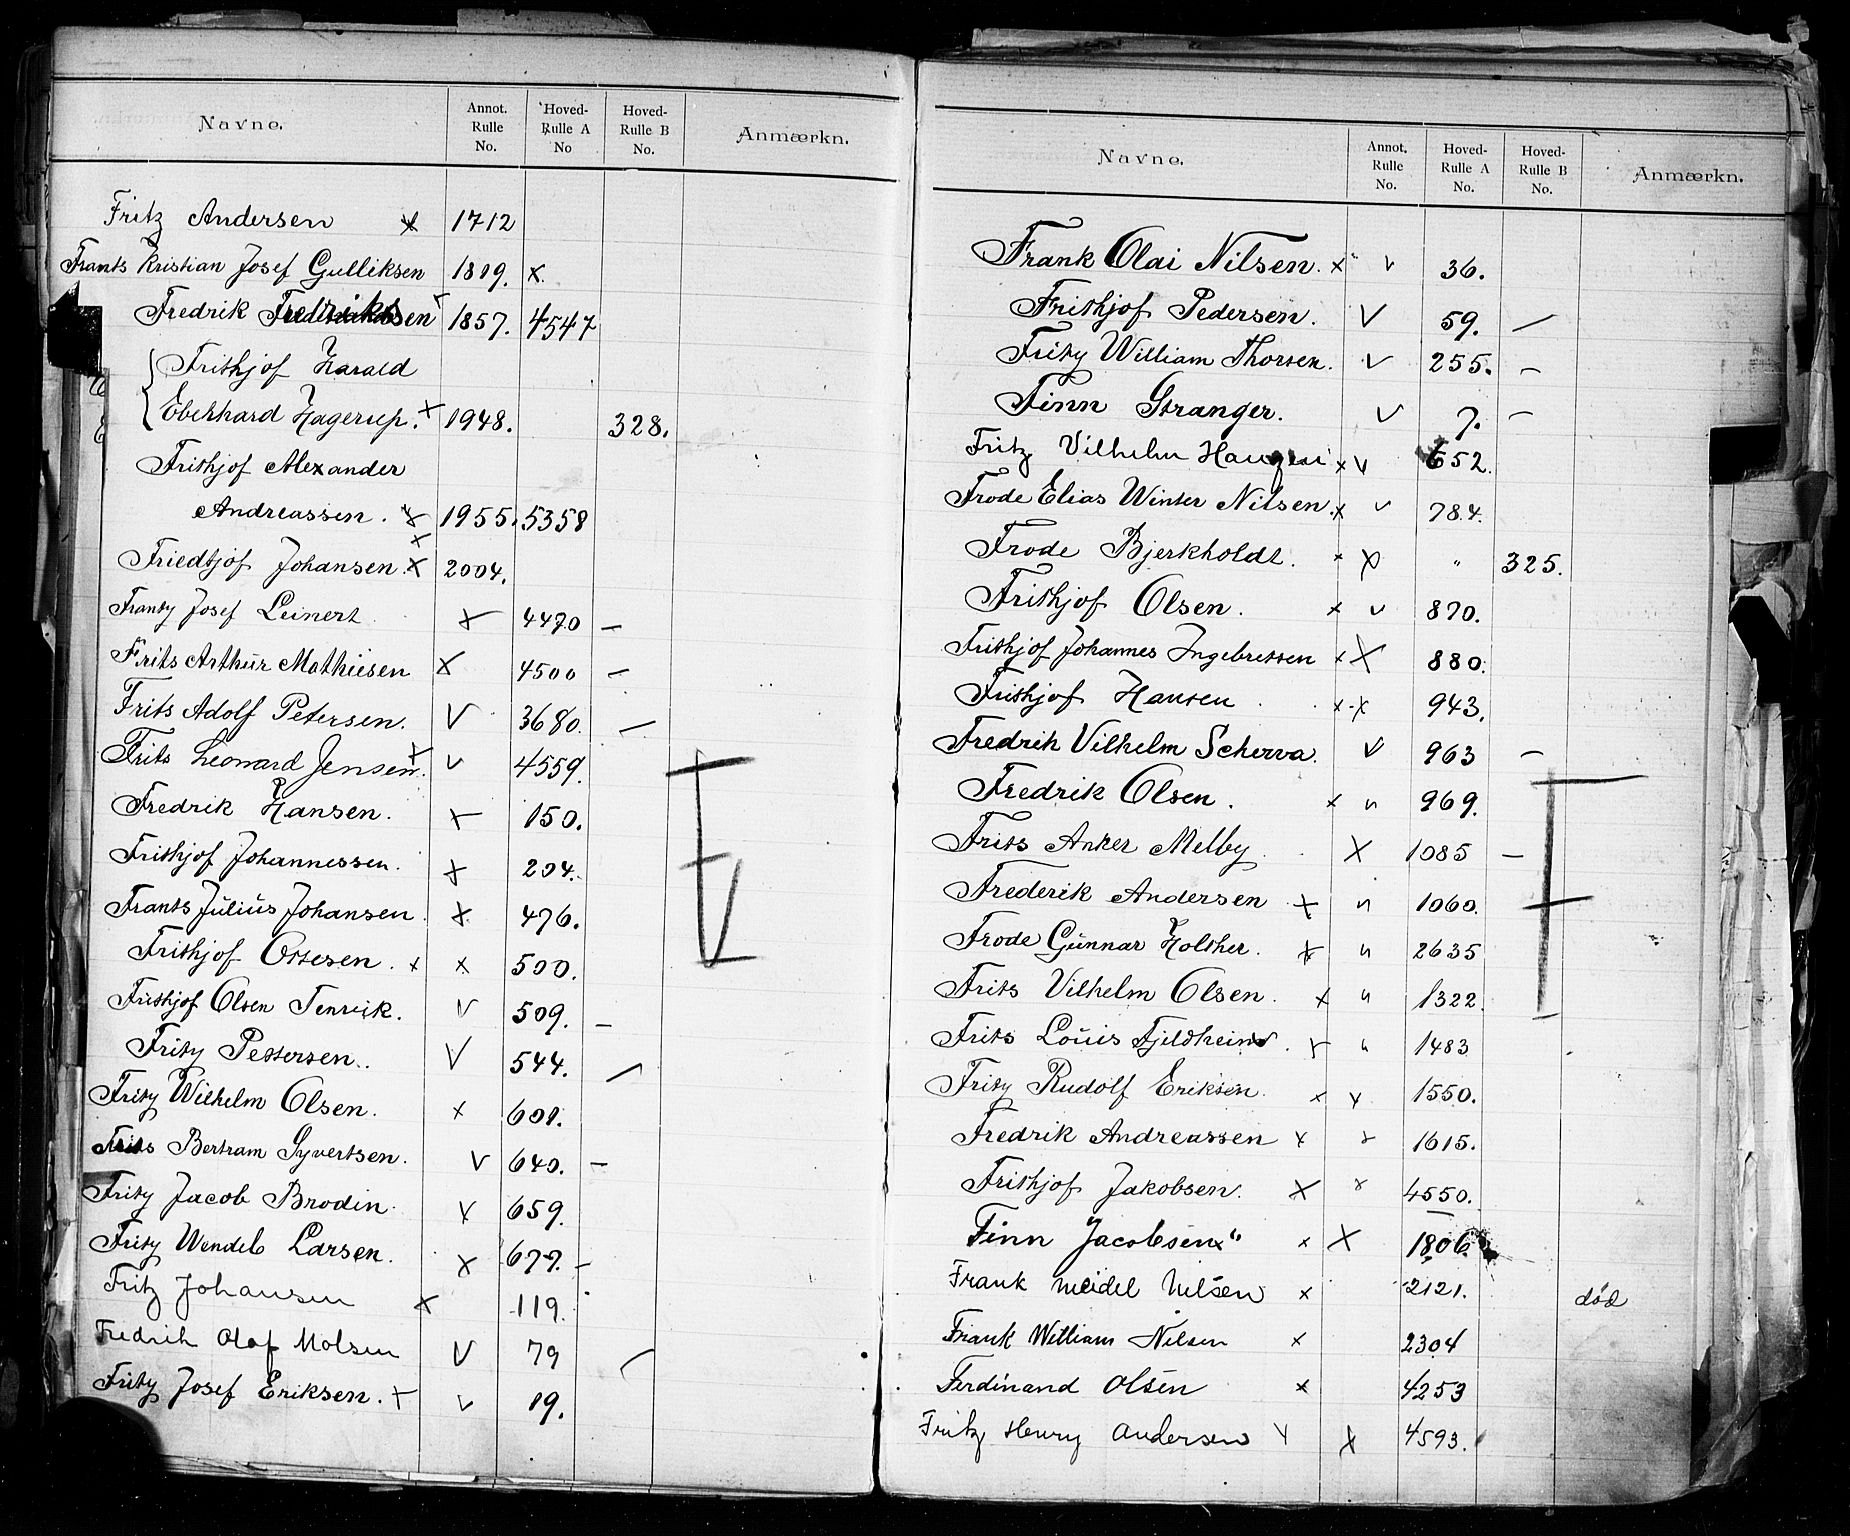 Navne. Annot. Rulle No. Hoved-Rulle A No Hoved-Rulle B No. Anmærkn.
Fritz Andersen x 1712
Frants Kristian Josef Gulliksen 1809. x
Fredrik Fredriksen x 1857. 4547
Frithjof Harald
Eberhard Hagerup. x 1948. 328.
Frithjof Alexander
Andreassen. x 1955. 5358
Friedtjof Johansen x 2004.
Frantz Josef Leinert x 4470 –
Frits Arthur Mathiesen x 4500 –
Frits Adolf Petersen. V 3680. –
Frits Leonard Jensen x V 4559.
Fredrik Hansen. x 150.
Frithjof Johannessen. x 204.
Frants Julius Johansen. x 476.
Frithjof Ottesen. x x 500.
Frithjof Olsen Tenvik. V 509. –
Fritz Pettersen. V 544. –
Fritz Wilhelm Olsen. x 601.
Frits Bertram Syvertsen. V 640. –
Fritz Jacob Brodin. x 659.
Fritz Wendel Larsen. x 677. –
Fritz Johansen x 119.
Fredrik Olaf Molsen V 79 –
Fritz Josef Eriksen. x V 19.
Navne. Annot. Rulle No. Hoved-Rulle A No. Hoved-Rulle B No. Anmærkn.
Frank Olai Nilsen. x V 36.
Frithjof Pedersen. V 59. –
Fritz William Thorsen. V 255. –
Finn Stranger. V 7. –
Fritz Vilhelm Haugen x V 652.
Frode Elias Winter Nilsen. x V 784.
Frode Bjerkholdt. x x " 325.
Frithjof Olsen. x V 870.
Frithjof Johannes Ingebretsen x X 880.
Frithjof Hansen x x 943.
Fredrik Vilhelm Scherva. V 963 –
Fredrik Olsen. x " 969.
Frits Anker Melby. X 1085 –
Frederik Andersen x " 1060.
Frode Gunnar Holther. x " 2635
Frits Vilhelm Olsen. x " 1322
Frits Louis Fjeldheim. x " 1483
Fritz Rudolf Eriksen. x x 1550.
Fredrik Andreassen x x 1615.
Frithjof Jakobsen. X x 4550.
Finn Jacobsen x" x X 1806.
Frank Meidel Nilsen x 2121. død
Frank William Nilsen x 2304
Ferdinand Olsen x 4253
Fritz Henry Andersen V X 4593.